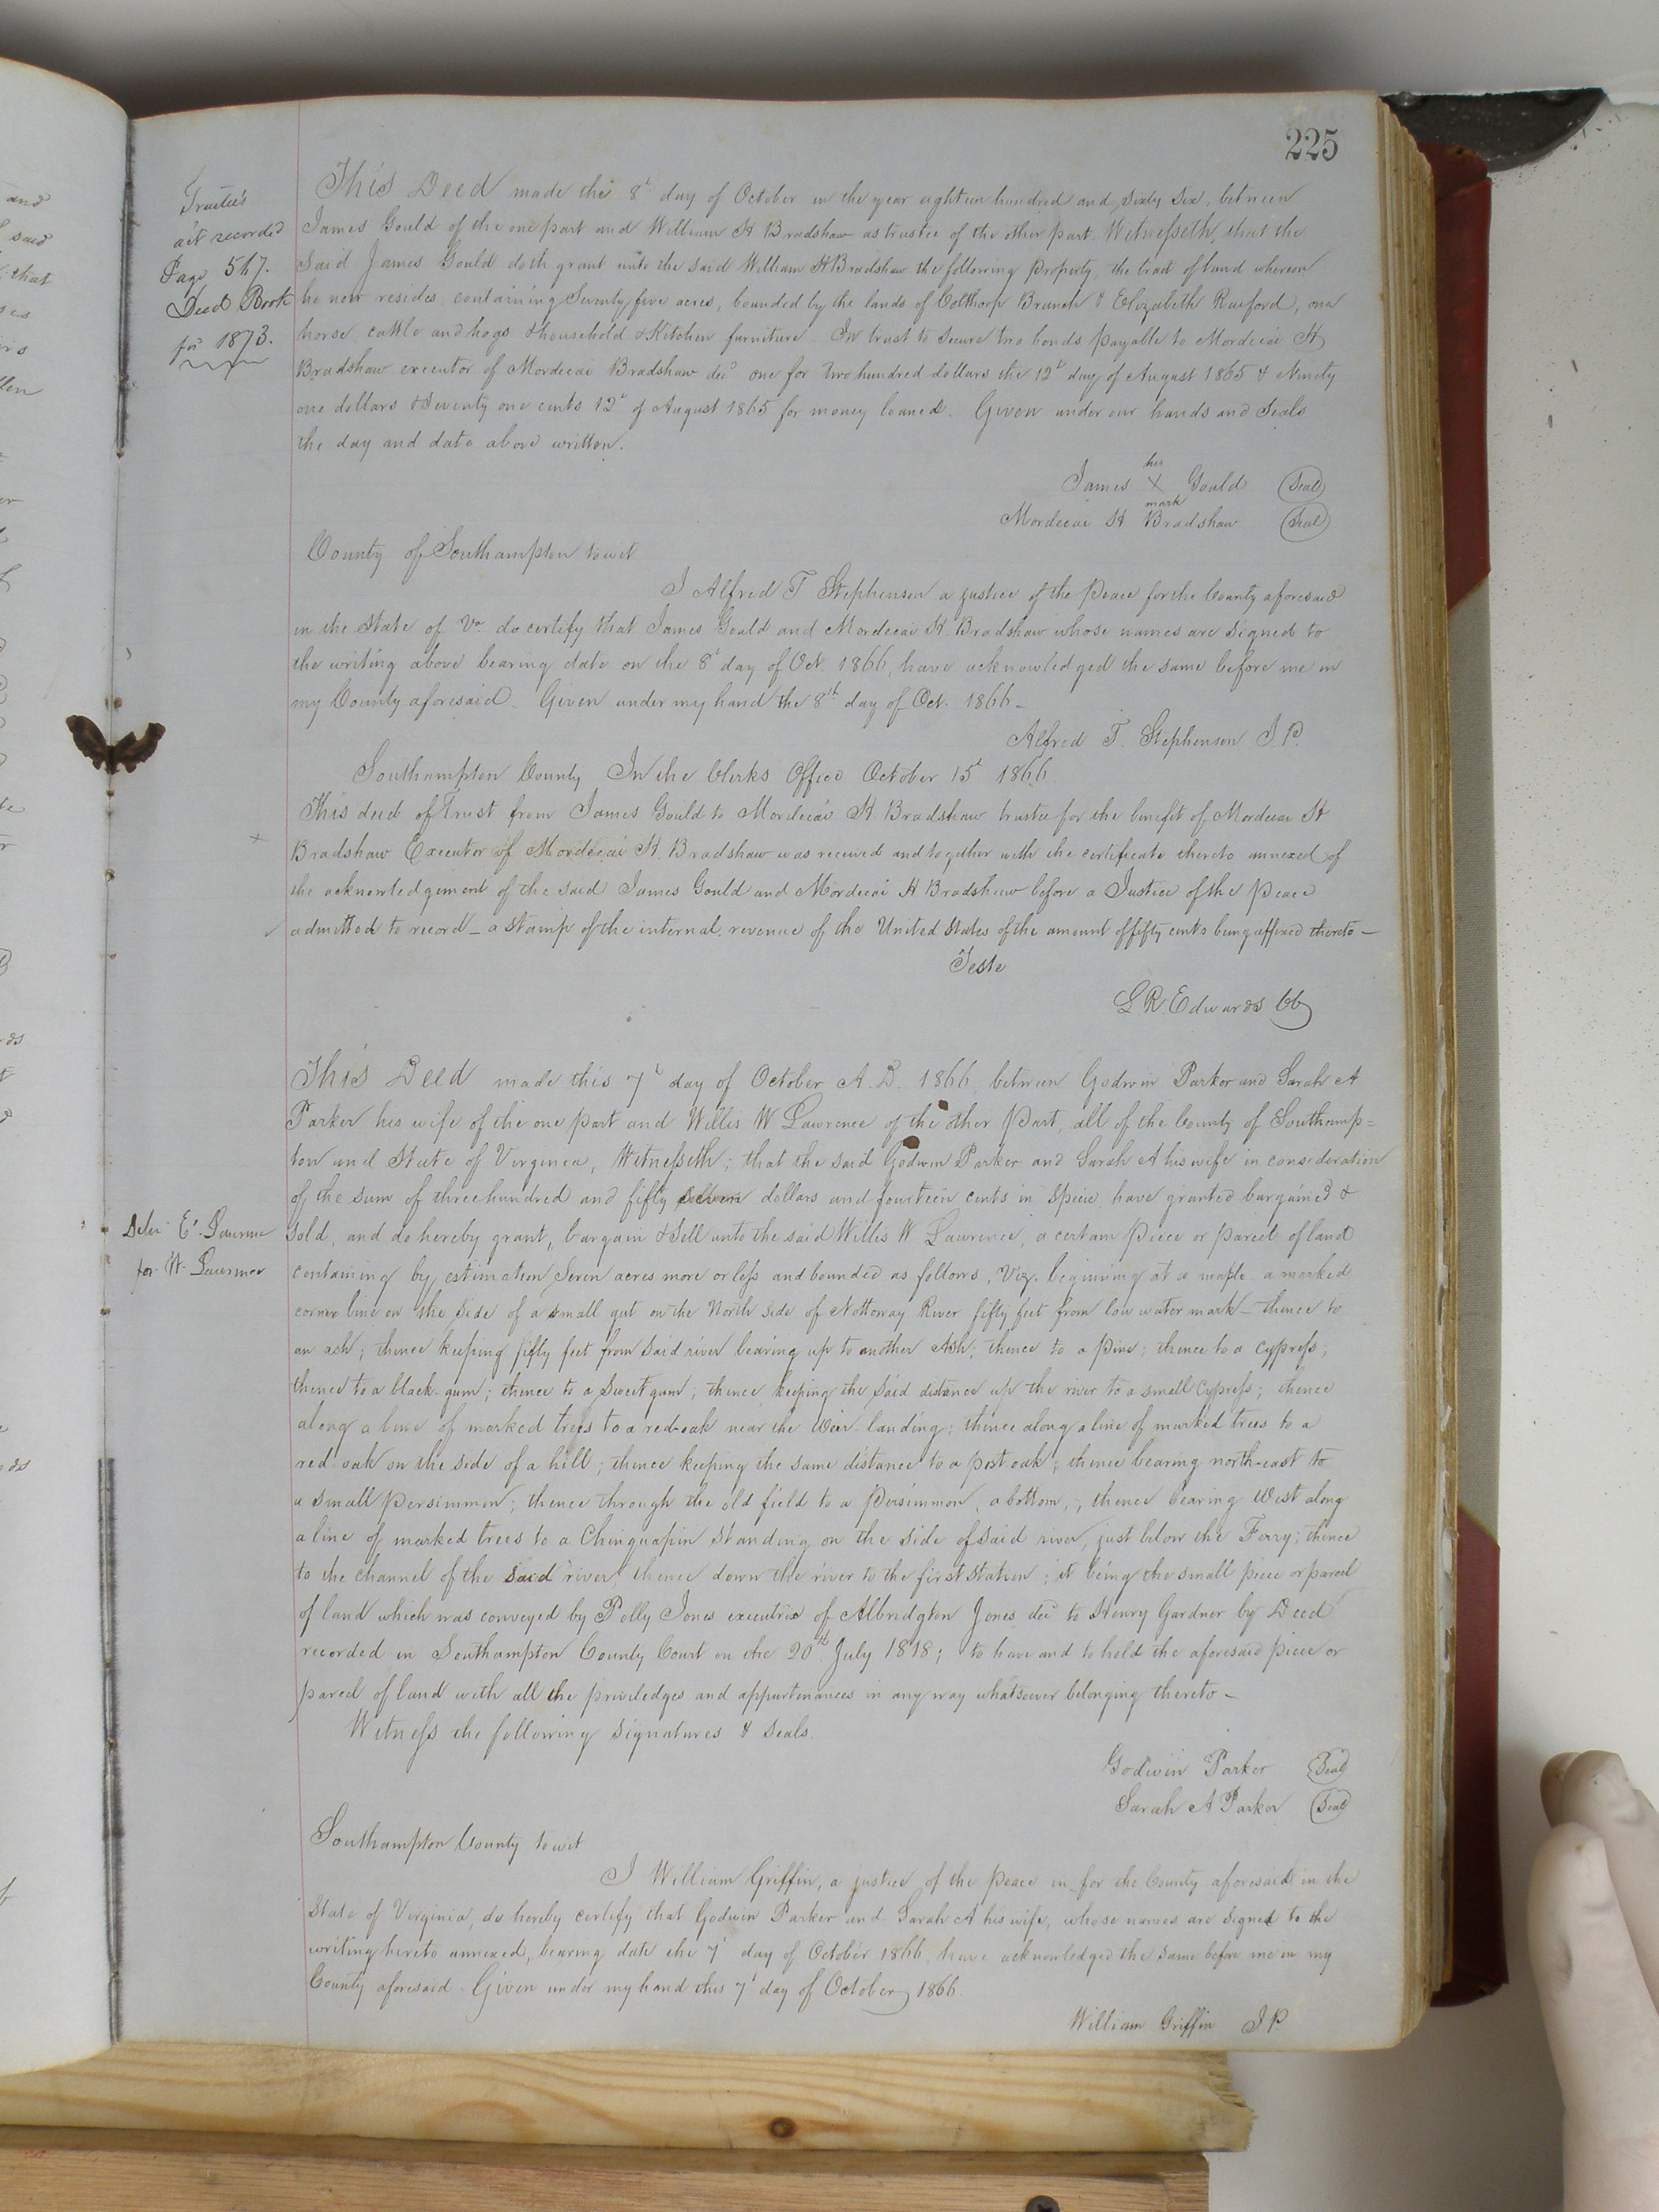 225
Trustee's
act recorded
Page 547.
Deed Book
for 1873.
This Deed made the 8t day of October in the year eighteen hundred and sixty six, between
James Gould of the one part and William H Bradshaw as trustee of the other part. Witnesseth, that the
Said James Gould doth grant unto the said William H Bradshaw the following Property, the tract of land whereon
he now resides, containing Seventy five acres, bounded by the lands of Colthorp Branch & Elizabeth Raiford, one
horse, cattle and hogs & household & Kitchen furniture. In trust to secure two bonds payable to Mordecai H
Bradshaw executor of Mordecai Bradshaw decd one for two hundred dollars the 12t day of August 1865 & Ninety
one dollars & Seventy one cents 12t of August 1865 for money loaned. Given under our hands and Seals
the day and date above written.
his
James X Gould (Seal)
mark
Mordecai H Bradshaw (Seal)
County of Southampton to wit
I Alfred T Stephenson a justice of the Peace for the County aforesaid
in the State of Va. do certify that James Gould and Mordecai H. Bradshaw whose names are signed to
the writing above bearing date on the 8t day of Oct. 1866, have acknowledged the same before me in
my County aforesaid. Given under my hand the 8th day of Oct. 1866 -
Alfred T. Stephenson J.P.
Southampton County In the Clerks Office October 15t 1866
This deed of Trust from James Gould to Mordecai H Bradshaw trustee for the benefit of Mordecai H
Bradshaw Executor of Mordecai H. Bradshaw was received and together with the certificate thereto annexed of
the acknowledgement of the said James Gould and Mordecai H Bradshaw before a Justice of the Peace
admitted to record - a Stamp of the internal revenue of the United States of the amount of fifty cents being affixed thereto -
Teste
L R. Edwards CC
This Deed made this 7t day of October A.D. 1866, between Godwin Parker and Sarah A
Parker his wife of the one part and Willis W Lawrence of the other Part, all of the County of Southamp=
ton and State of Virginia, Witnesseth; that the said Godwin Parker and Sarah A his wife in consideration
of the sum of three hundred and fifty seven dollars and fourteen cents in Specie, have granted bargained &
Sold, and do hereby grant, bargain & Sell unto the said Willis W Lawrence, a certain Piece or parcel of land
for W. Lawrence
containing by estimation Seven acres more or less and bounded as follows, Viz. beginning at a maple a marked
corner line on the side of a small gut on the North side of Nottoway River fifty feet from low water mark - thence to
an ash; thence keeping fifty feet from said river bearing up to another Ash; thence to a pine; thence to a Cypress;
thence to a black-gum; thence to a sweet gum; thence keeping the said distance up the river to a small Cypress; thence
along a line of marked trees to a red-oak near the Weir-landing; thence along a line of marked trees to a
red oak on the side of a hill; thence keeping the same distance to a post oak; thence bearing north-east to
a small persimmon; thence through the old field to a Persimmon, a bottom,; thence bearing West along
a line of marked trees to a Chinquapin standing on the side of said river, just below the Ferry; thence
to the channel of the said river; thence down the river to the first station; it being the small piece or parcel
of land which was conveyed by Polly Jones executrix of Albridgton Jones, decd to Henry Gardner by Deed
recorded in Southampton County Court on the 20th July 1818; to have and to hold the aforesaid piece or
parcel of land with all the priviledges and appurtenances in any way whatsoever belonging thereto -
Witness the following signatures & seals.
Godwin Parker (Seal)
Sarah A Parker (Seal)
Southampton County to wit
I William Griffin, a justice of the peace in for the County aforesaid in the
State of Virginia, do hereby certify that Godwin Parker and Sarah A his wife, whose names are signed to the
writing hereto annexed, bearing date the 7t day of October 1866, have acknowledged the same before me in my
County aforesaid. Given under my hand this 7t day of October 1866.
William Griffin J P.